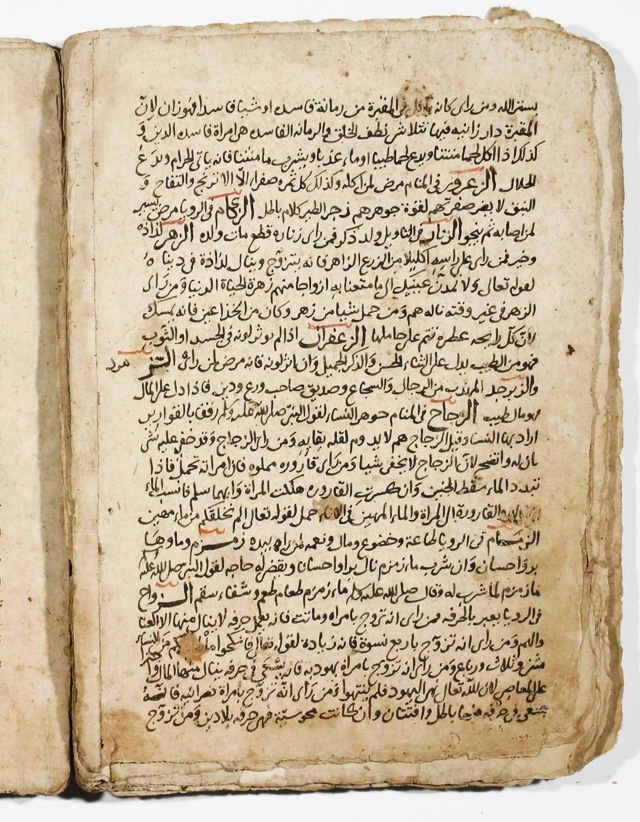 بستر الله ومن راى كانه ياكل في المقبرة من رمانة فاسدة او شيا فاسدا فهو زان لان
المقبرة دار زانية فيها تتلاشى نطف الخلق والرمانة الفاسدة هي امراة فاسدة الدين و
كذلك اذا اكل لحما منتنا ويدع لحما طيبا او ماء عذبا ويشرب ما منتنا فانه ياتي الحرام ويدع
الحلال الزعرور في المنام مرض لمن اكله وكذلك كل ثمرة صفرا الا الاترنج والتفاح و
النبق لا يضر صفرتهم لقوة جوهرهم زجر الطير كلام باطل الزكام في الرويا مرض يسير
لمن اصابه ثم ينجو الزنار في التاويل ولد ذكر فمن راى زناره قطع مات ولده الزهر لذاذة
وخير فمن راى على راسه اكليلا من الزرع الزاهر فانه يتزوج وينال لذاذة في دنياه
لقوله تعالى ولا تمدن عينيك الى ما متعنا به ازواجا منهم زهرة الحياة الدنيا ومن راى
الزهر في غير وقته ناله هم ومن حمل شيا من زهر وكان من الخزاعين فانه يمسك
لان كل رايحة عطرة تنم على حاملها الزعفران اذا لم يوثر لونه في الجسد او الثوب
فهو من الطيب يدل على الثناء الحسن والذكر الجميل وان اثر لونه فانه مرض لمن راى
والزبرجد المهذب من الرجال والشجاع وصديق صاحب ورع ودين فاذا دل على المال
فهو مال طيب الزجاج في المنام جوهر النساء لقول النبي صلى الله عليه وسلم رفقا بالقوارير
اراد بها النساء وقيل الزجاج هم لا يدوم لقلة بقايه ومن راى الزجاج وقد خفي عليه شي
بان له واتضح لان الزجاج لا يخفي شيا ومن راى قارورة مملوة فان امراته تحمل فاذا
تبدد الماء سقط الجنين وان كسرت القارورة هلكت المراة وايهما سلم فانسب الماء
والقارورة الى المراة والماء المهين في الاناء حمل لقوله تعالى الم نخلقكم من ماء مهين
الزمام في الرويا طاعة وخضوع ومال ونعمة لمن راه بيده زمزم وماوها
بر واحسان وان شرب ما زمزم نال برا واحسانا ويقضى له حاجة لقول النبي صلى الله عليه
ماء زمزم لما شرب له وقال صلى الله عليه وسلم ماء زمزم طعام طعم وشفاء سقم الزواج
في الرويا يعبر بالحرفة فمن راى انه تزوج بامراة وماتت فانه يعمل حرفة لا ينال منها الا العنا
والهم ومن راى انه تزوج باربع نسوة فانه زيادة لقوله تعالى فانكحوا ما طاب لكم من النساء
مثنى وثلاث ورباع ومن راى انه تزوج بامراة يهودية فانه يسعى في حرفة ينال منها المال و
على المعاصي لان الله تعالى نهى اليهود فلم ينتهوا ومن راى انه تزوج بامراة نصرانية فانه
يسعى في حرفة فيها باطل وافتتان وان كانت مجوسية فهي حرفة بلا دين ومن تزوج